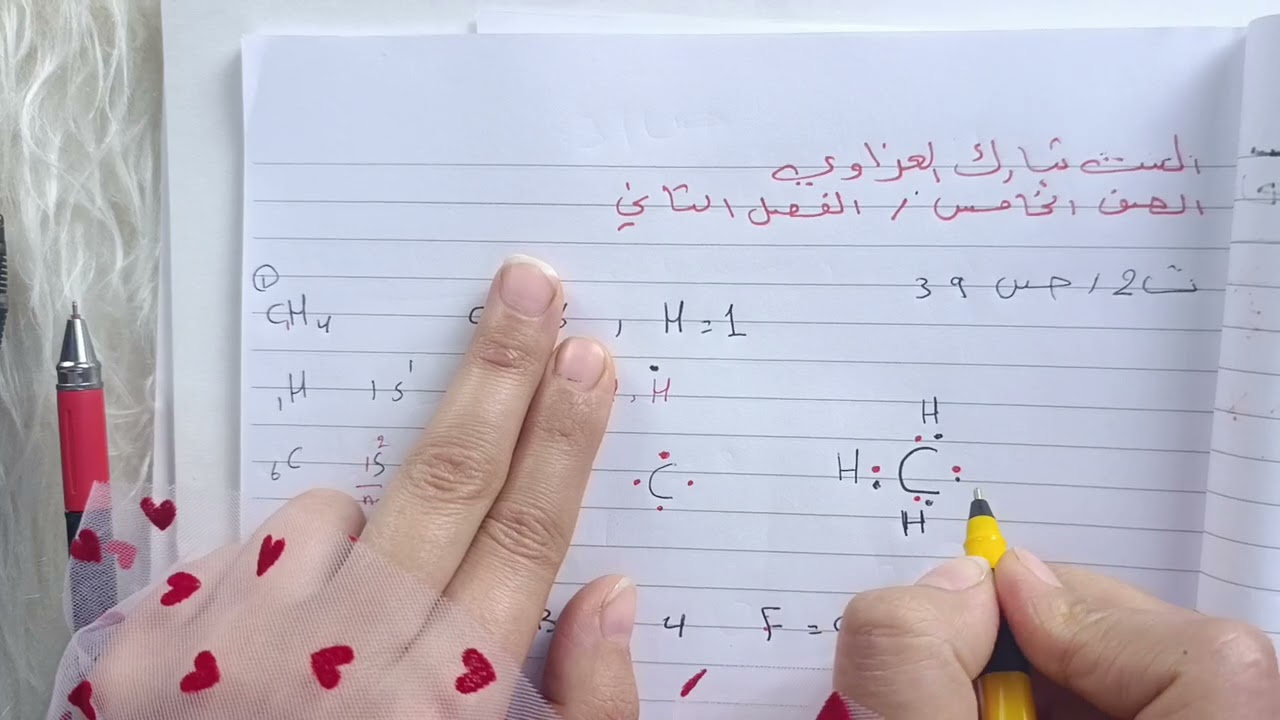 الست تبارك العزاوي
الصف الخامس / الفصل الثاني
ت2 / ص 39
①
CH4 , H = 1
1H 1s1 , H
6C 1s2 C
H
H C
H
4 F =